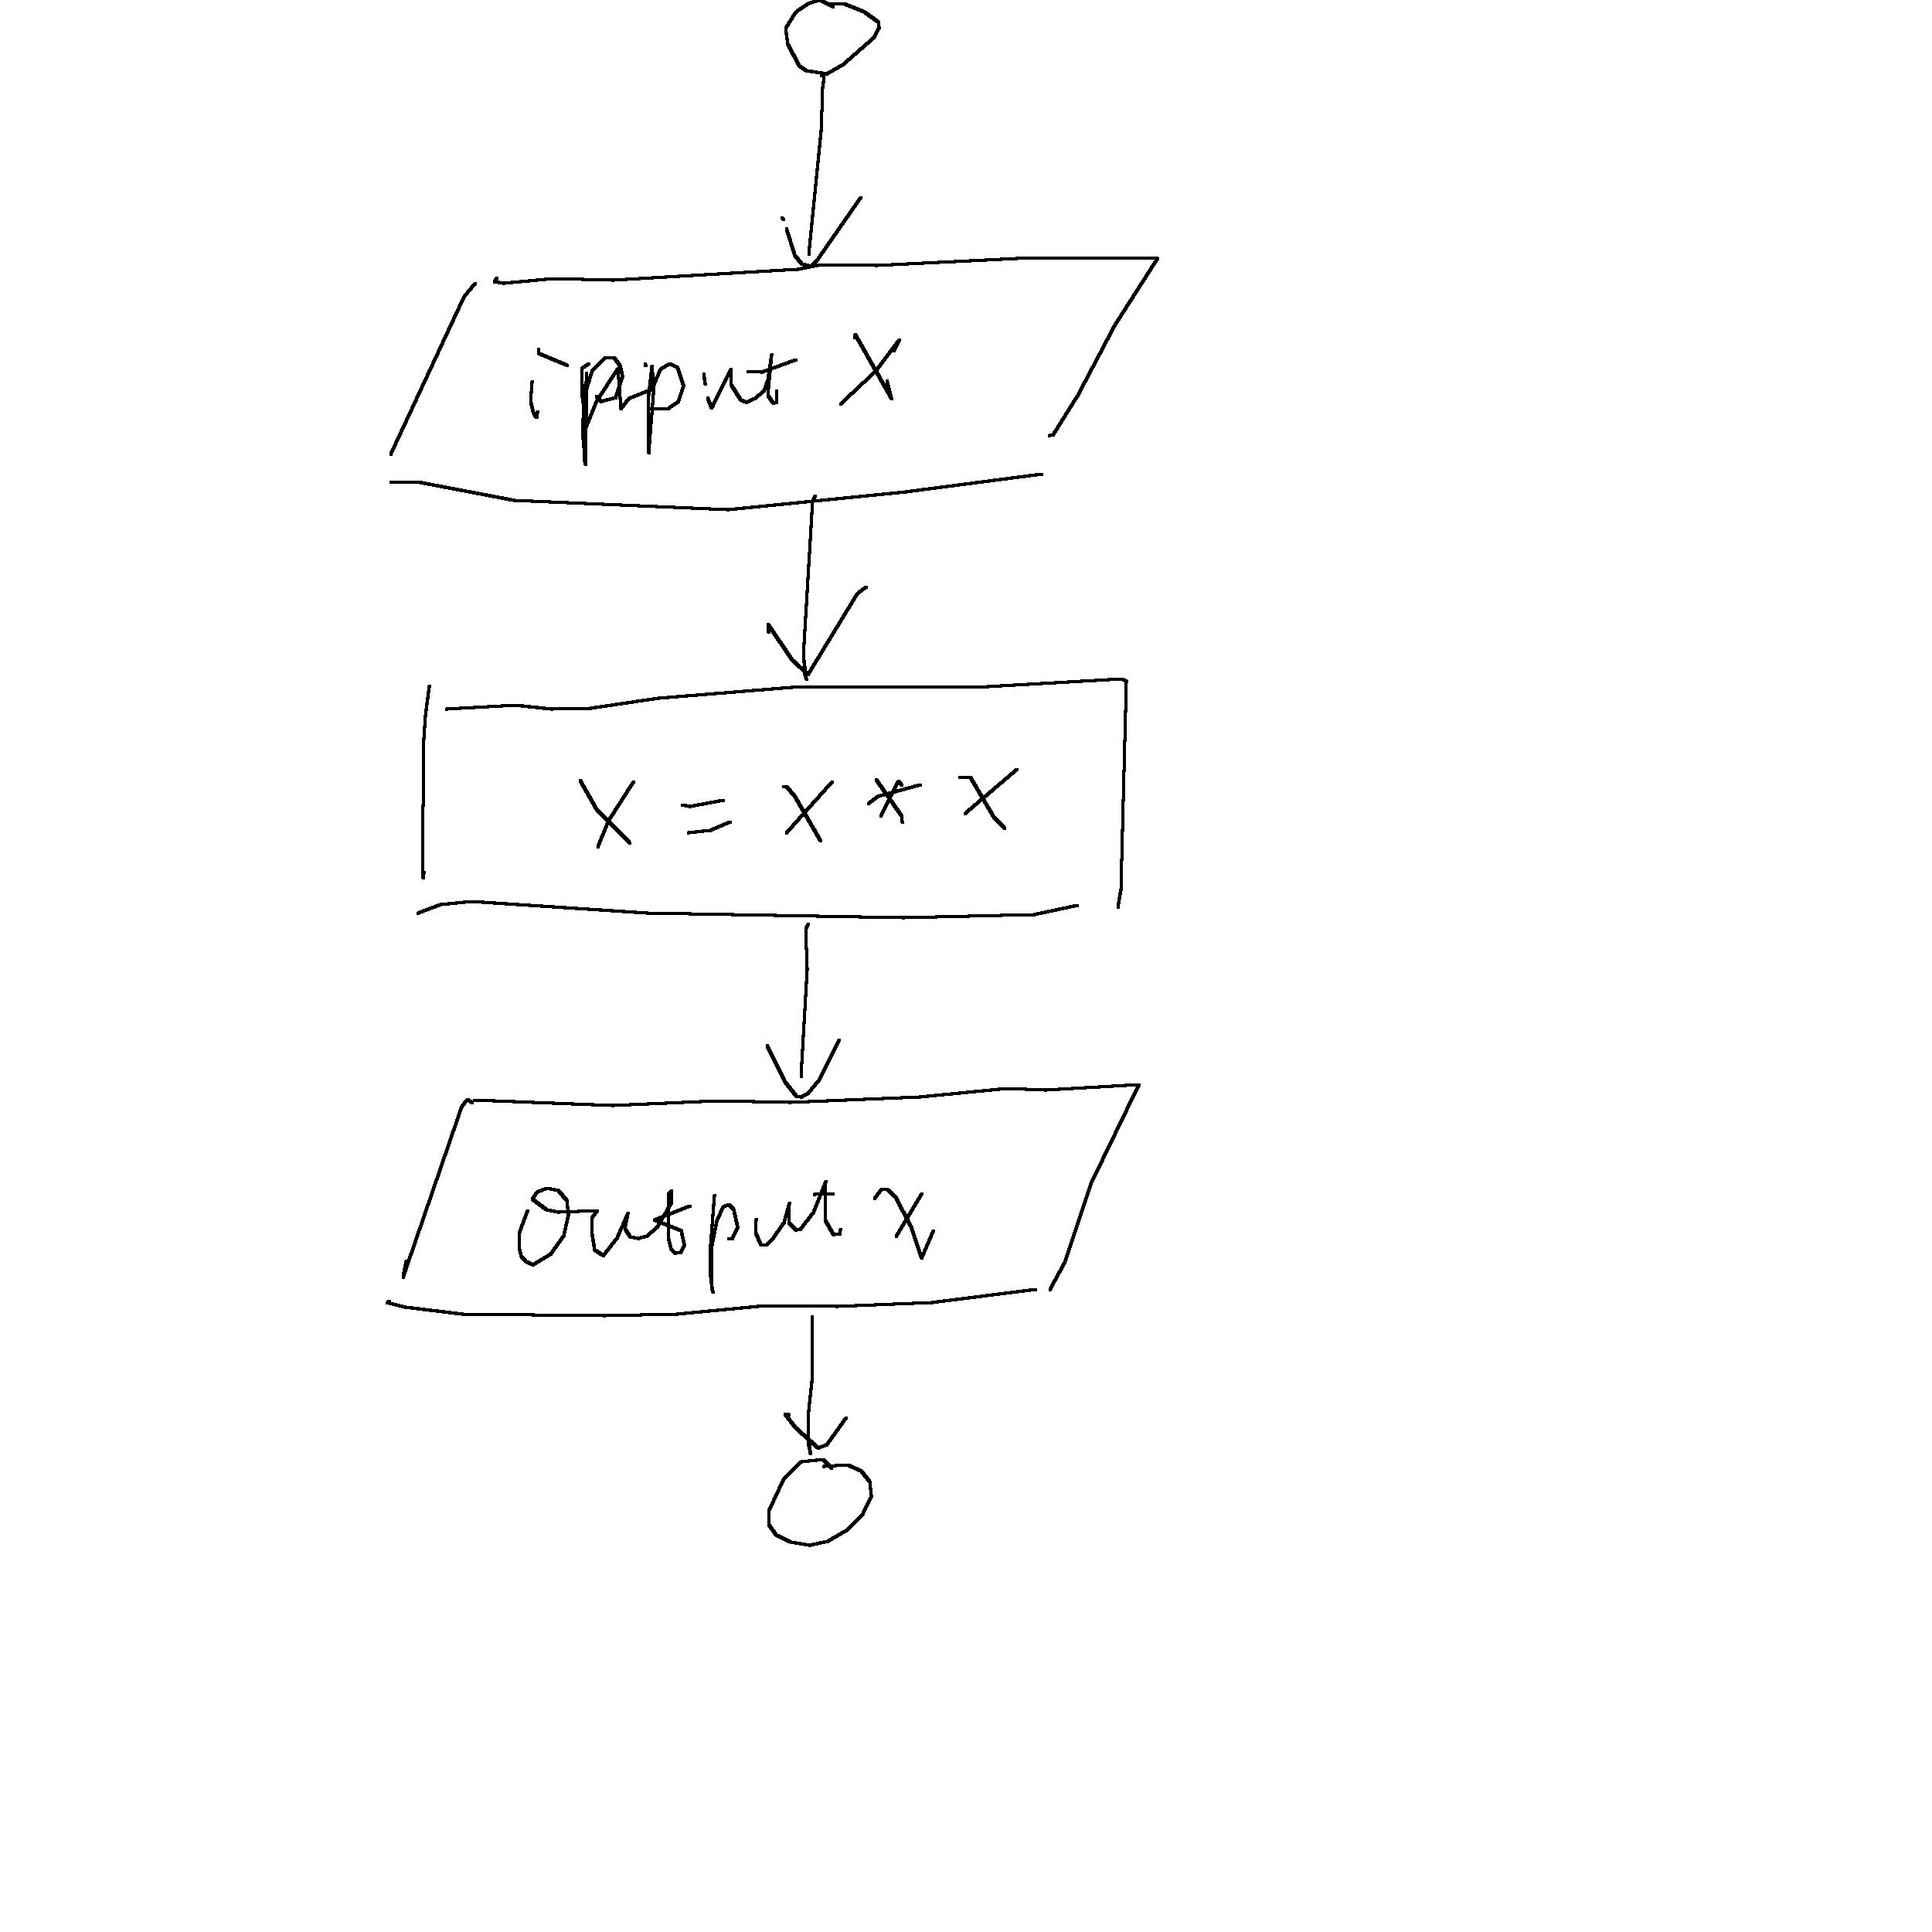 input X
X = X * X
Output x